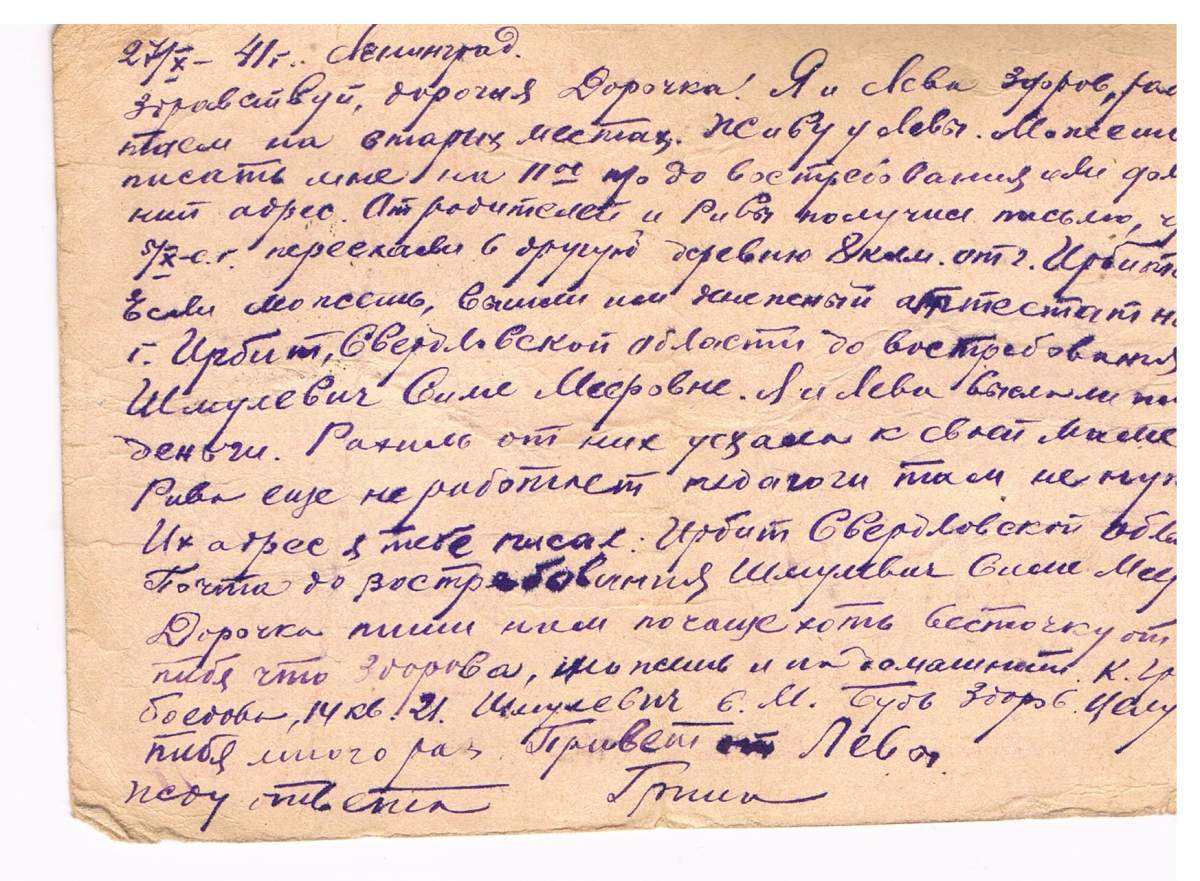 27/X – 41 г. Ленинград.
Здравствуй, дорогая Дорочка! Я и Лева здоров, раб
таем на старых местах. Живу у Левы. Можешь
писать мне на 11ое п/о до востребования или дом
ний адрес. От родителей и Ривы получил письмо, ч
5/X-с.г. переехали в другую деревню 8 клм. от г. Ирбит
Если можешь, вышли им денежный аттестат на
г. Ирбит, Свердловской области до востребования
Шмулевич Симе Мееровне. Я и Лева выслали им
деньги. Рахиль от них уехала к своей маме
Рива еще не работает педагоги там не нуж
Их адрес я тебе писал: Ирбит Свердловской обл
Почта до востребования Шмулевич Симе Мее
Дорочка пиши нам почаще хоть весточку от
тебя что здорова, можешь и на домашний. К. Гри
боедова, 14 кв. 21. Шмулевич С. М. Будь здоров. Целу
тебя много раз. Привет от Левы.
Жду ответа Гриша